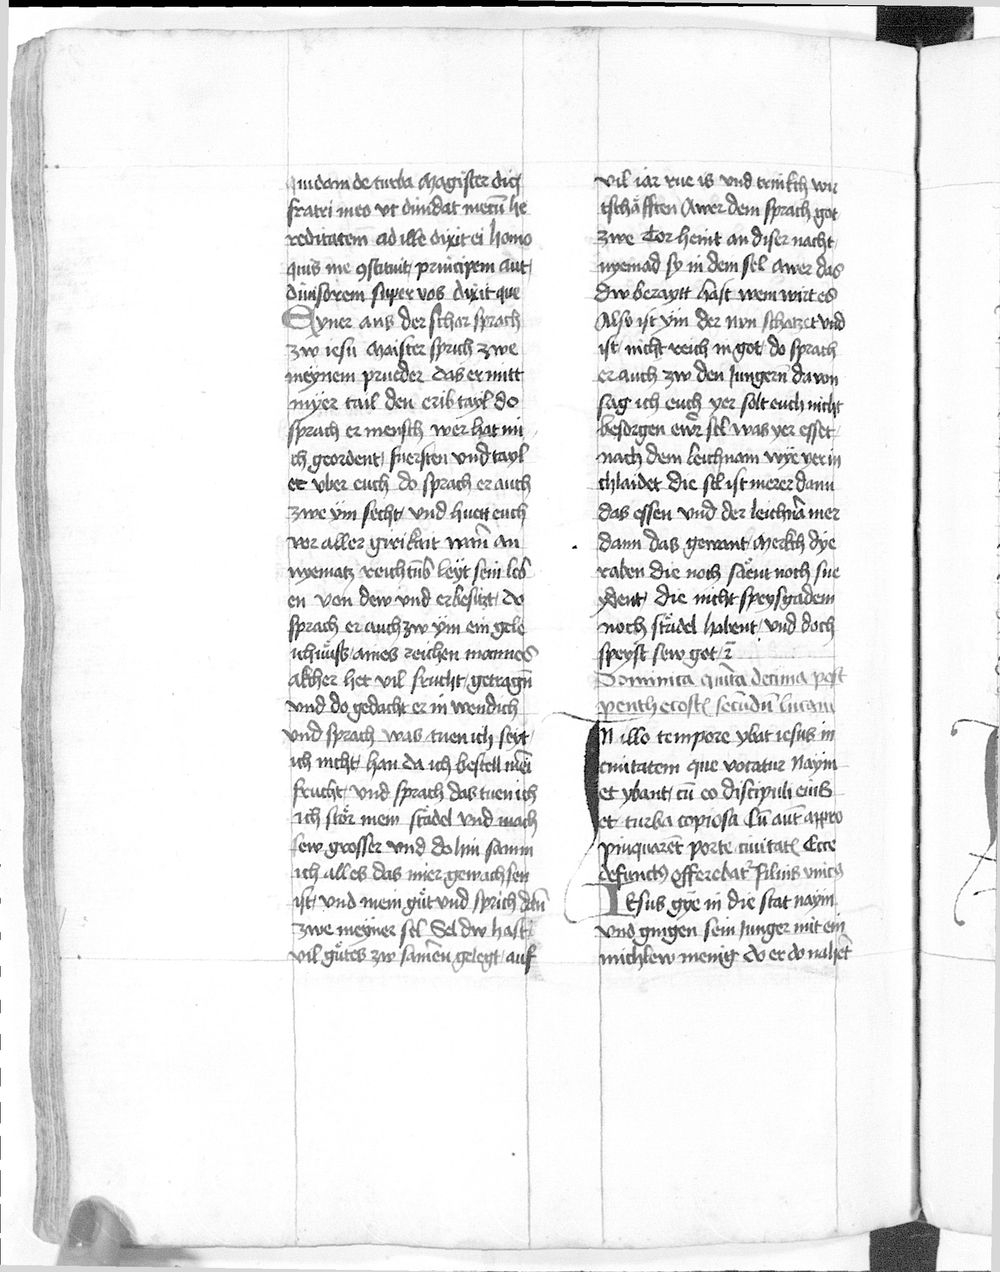 quidam de turba Magister dic
fratri meo vt diuidat mecū he
reditatem ad ille dixit ei homo
quis me ꝯstituit principem aut
diuisorem super vos dixit que
Eyner aus der schar sprach
zw iesu Maister sprich zwe
meynem prueder das er mitt
myer tail den erib tayl do
sprach er mensch wer hat mi
ch geordent fuersten vnd tayl
er vber euch do sprach er auch
zwe ÿm secht vnd huett euch
vor aller greikait wan̄ an
nyematz reichtūb leÿt sein leb
en von dew vnd er besitzt do
sprach er auch zw ÿm ein gele
ichnüss aines reichen mannes
akher het vil frucht getragn̄
vnd do gedacht er in wendich
vnd sprach was tuen ich seyt
ich nicht han da ich bestell mei
frucht vnd sprach das tuen ich
ich stör mein städel vnd mach
sew grosser vnd do hin samm
ich alles das mier gewachsen
ist vnd mein güt vnd sprich dan̄
zwe meyner sel Sel dw hast
vil gütes zw samen gelegt auf
vil iar rue is vnd trinkch wir
tschäfften Awer dem sprach got
zwe Tor heint an diser nacht
nyemad sy in dem sel Awer das
dw beraytt hast wem wirt es
Also ist ÿm der nvn schatzet vnd
ist nicht reich in got do sprach
er auch zw den Jungern da von
sag ich euch yer solt euch nicht
besorgen ewr sel was yer esset
nach dem leichnam wÿe yer in
chlaidet die sel ist merer dann
das essen vnd der leichnā mer
dann das gewant Merkch dÿe
raben die noch säent noch sne
ydent die nicht speysgadem
noch städel habent vnd doch
speyst sew got ꝛc̄
Dominica quīta decima post
penthecostē secundū lucam
In illo tempore ybat iesus in
ciuitatem que vocatur Naym
et ybant cū eo discipuli eius
et turba copiosa Cū aut̄ appro
pinquaret porte ciuitat Ecce
defunctus efferebat filius vnicus
Iesus gÿe in die stat naym
vnd gingen sein Junger mit ein
michlew menig do er do nahet